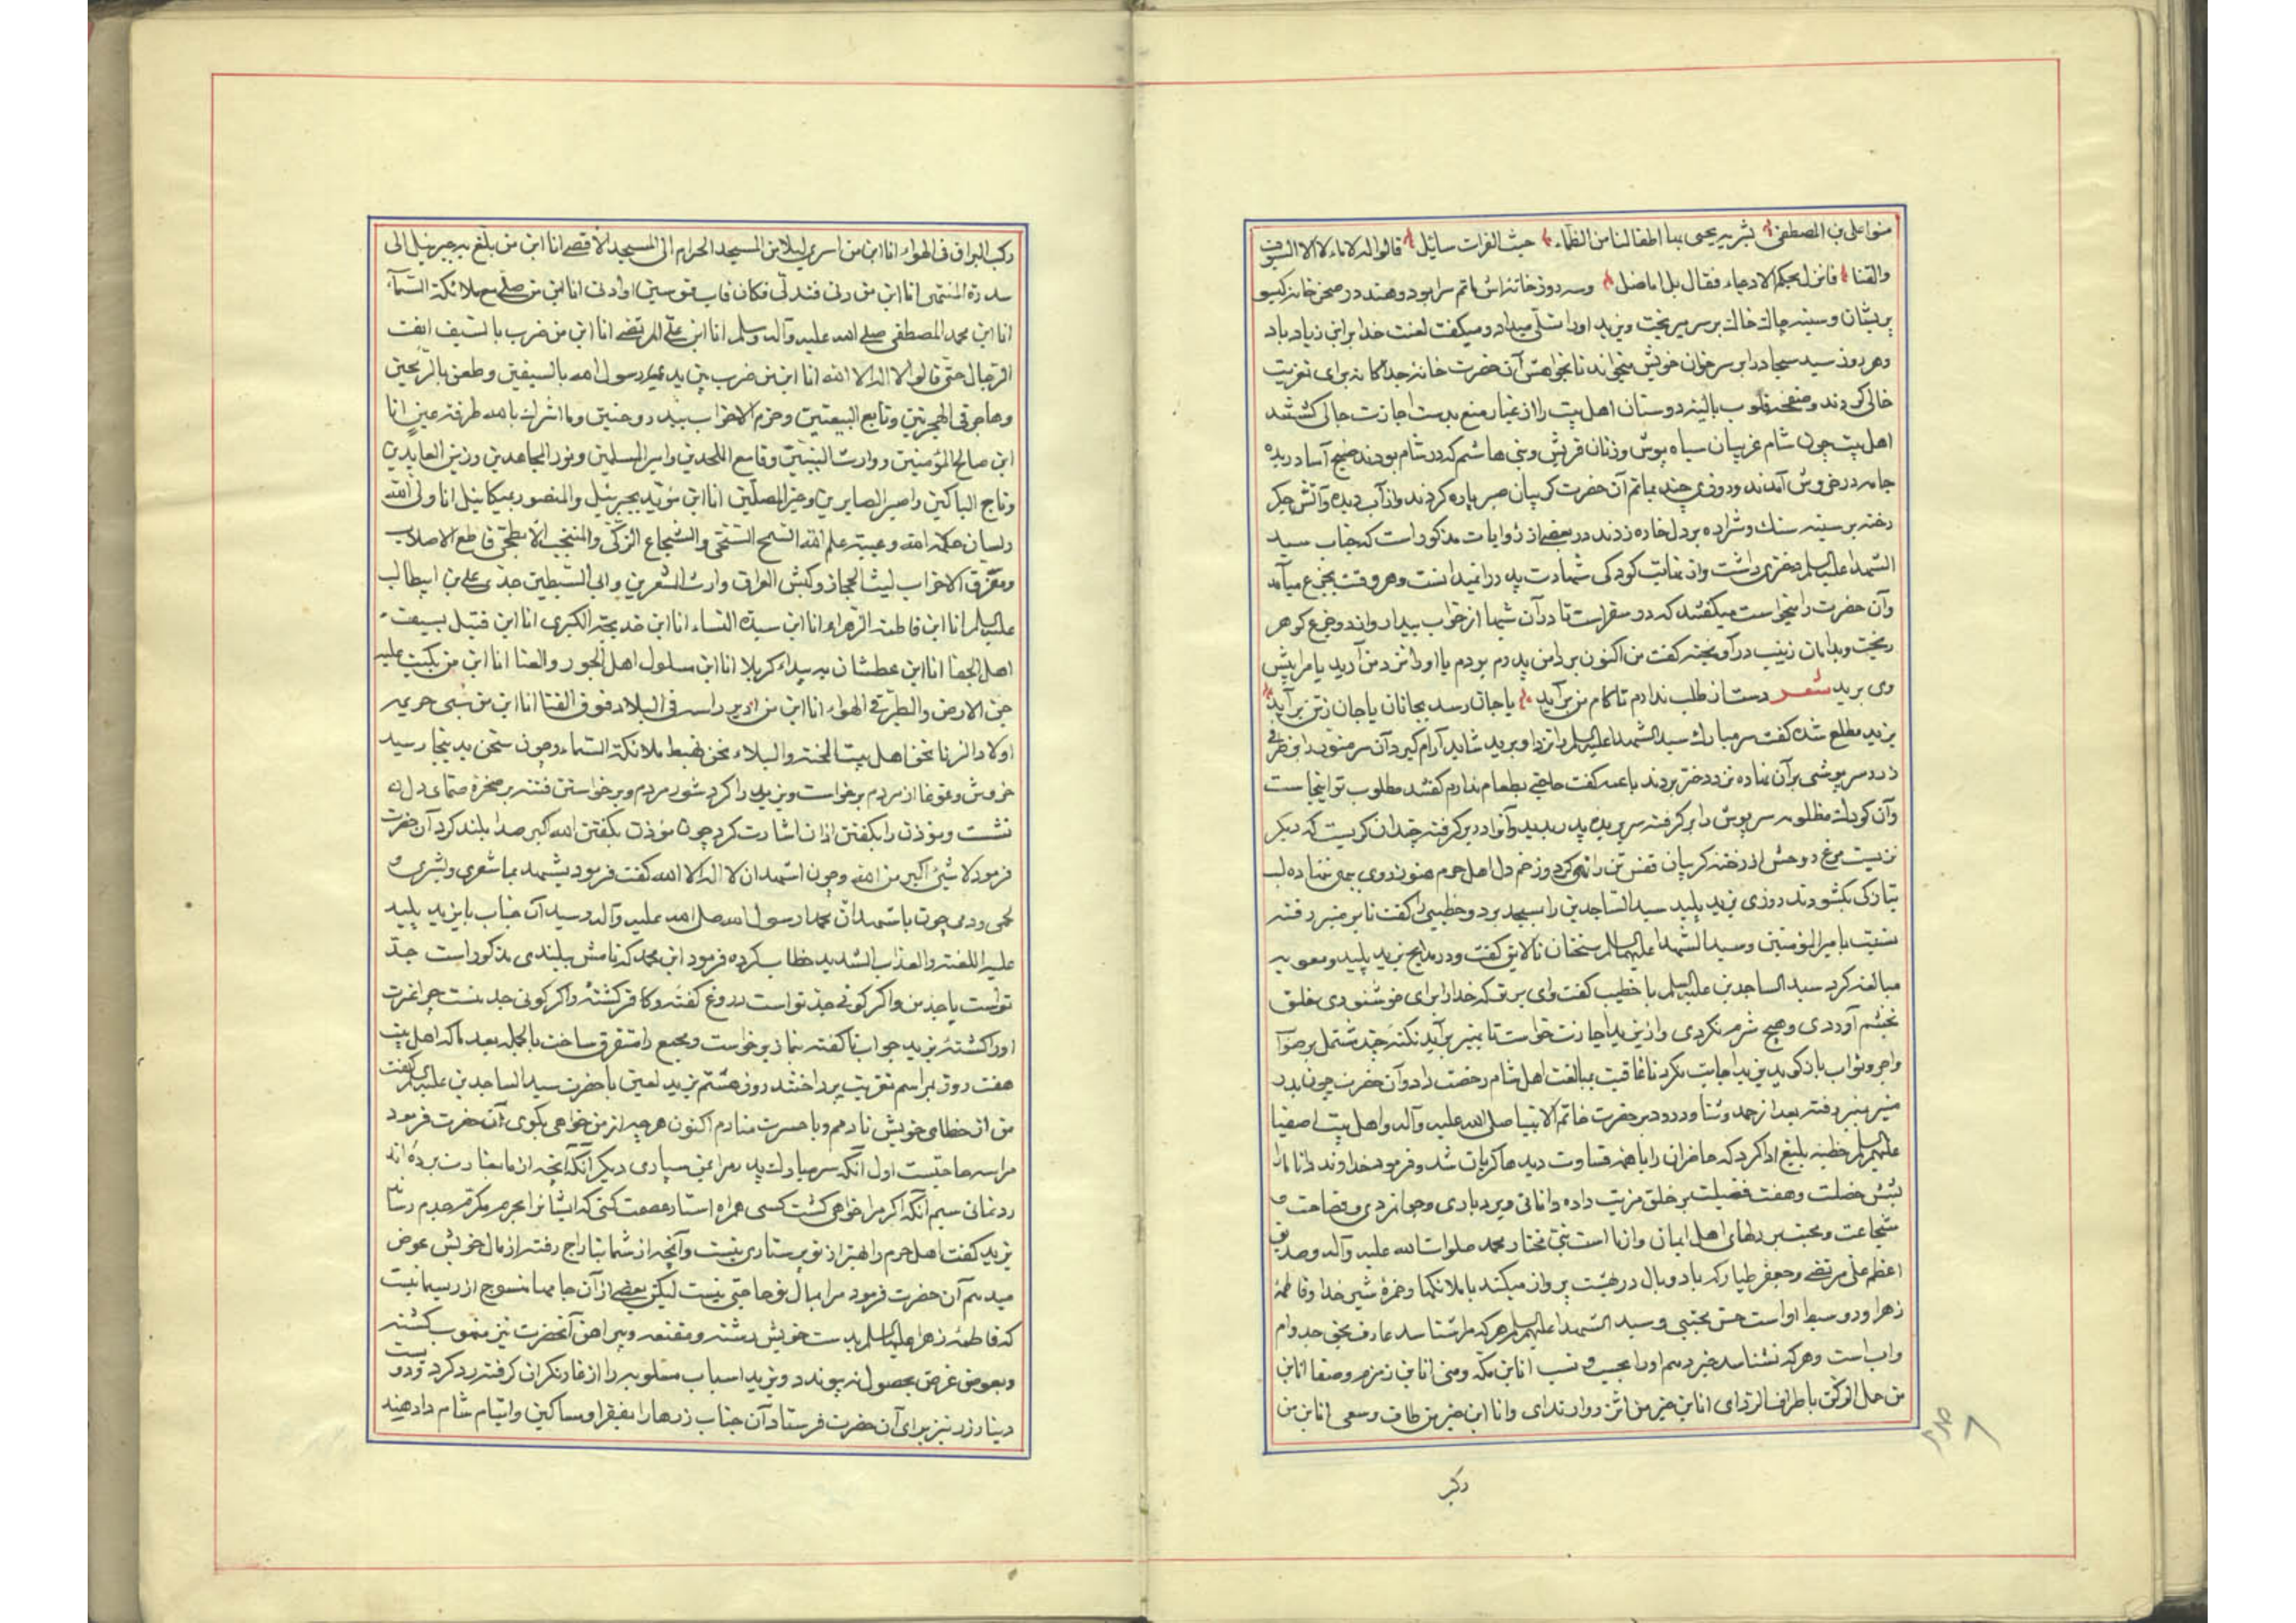 منوا علی بن المصطفی بشربه یحیی بها اطفالنا من الظماء حیث الفرات سائل قالوا له لا ماء لا الا السیوف
والقنا فانزل بحکم الادعیاء فقال بل اناضل وسه روز خانه‌اش ماتم سرا بود و هند در صحن خانه کیسو
پریشان و سینه چاک خاک بر سر میریخت و یزید اورا تسلی میداد و میکفت لعنت خدا بر ابن زیاد باد
و هر روز سید سجاد را بر سر خوان خویش میخواند تا بخواهش آن حضرت خانهٔ جداکانه برای تعزیت
خالی کردند و صفحه قلوب بالینه دوستان اهل بیت را از غبار منع بدست اجازت خالی کشتند
اهل بیت چون شام غریبان سیاه پوش و زنان قریش و بنی هاشم که در شام بودند صبح آسا دریده
جامه در خروش آمدند و روزی چند بماتم آن حضرت کریبان صبر پاره کردند و از آب دیده و آتش جکر
رخنه بر سینه سنک و شراره بر دل خاره زدند در بعضی از روایات مذکور است که جناب سید
الشهدا علیه السلم دختری داشت و از غایت کودکی شهادت پدر را نمیدانست و هر وقت بجزع میآمد
و آن حضرت را میخواست میکفتند که در سفر است تا در آن شبها از خواب بیدار و اند و جزع کوهر
ریخت و بدامان زینب در آویخته کفت من اکنون بر دامن پدرم بودم یا او را نزد من آرید یا مرا پیش
وی برید شعر دست از طلب ندارم تا کام من برآید یا جان رسد بجانان یا جان ز تن برآید
یزید مطلع شده کفت سر مبارک سید الشهدا علیه السلم را نزد او برید شاید آرام کیرد آن سر منور در ظرفی
زرد سرپوشی بر آن نهاده نزد دختر بردند با عمه کفت حاجتی بطعام ندارم کفتند مطلوب تو اینجاست
و آن کودک مظلومه سرپوش را بر کرفته سر بریده پدر بدید و آنرا در بر کرفته چندان کریست که دیکر
نزیست مرغ روحش از رخنه کریبان قفس تن را تهی کرد و زخم دل اهل حرم هنوز روی بهی ننهاده لب
بتازکی بکشودند روزی یزید پلید سید الساجدین را بمسجد برد و خطیبی را کفت تا بر منبر رفته
نسبت بامیر المؤمنین و سید الشهدا علیهما السلم سخنان نالایق کفت و در مدایح یزید پلید و معویه
مبالغه کرد سید الساجدین علیه السلم با خطیب کفت وای بر تو که خدا را برای خوشنودی خلق
بخشم آوردی و هیچ شرم نکردی و از یزید اجازت خواست تا بمنبر برآید نکتهٔ چند مشتمل بر صواب
و اجر و ثواب باز کوید یزید اجابت نکرد تا عاقبت بمبالغت اهل شام رخصت داد و آن حضرت چون بدر
منیر بمنبر رفته بعد از حمد و ثنا و درود بر حضرت خاتم الانبیا صلی الله علیه وآله و اهل بیت اصفیا
علیهم السلم خطبه بلیغ ادا کرد که حاضران را با همه قساوت دیدها کریان شد و فرمود خداوند دانا ما را
بشش خصلت و هفت فضیلت بر خلق مزیت داده دانائی و بردباری و جوانمردی و فصاحت و
شجاعت و محبت بر دلهای اهل ایمان و از ما است نبی مختار محمد صلوات الله علیه وآله و صدیق
اعظم علی مرتضی و جعفر طیار که با دو بال در بهشت پرواز میکند با ملائکها و حمزهٔ شیر خدا و فاطمهٔ
زهرا و دو سبط او است حسن مجتبی و سید الشهدا علیهم السلم هر که مرا شناسد عارف بحق جد و ام
و اب است و هر که نشناسد خبر دهم او را بحسب و نسب انا بن مکه ومنی انا بن زمزم وصفا انا بن
من حمل الرکن باطراف الرداء انا بن خیر من ائتزر وارتدی و انا ابن خیر من طاف وسعی انا بن من
رکب
رکب البراق فی الهواء انا ابن من اسری لیلا من المسجد الحرام الی المسجد الاقصی انا ابن من بلغ به جبرئیل الی
سدرة المنتهی انا ابن من دنی فتدلی فکان قاب قوسین او ادنی انا ابن من صلی مع ملائکة السمآء
انا ابن محمد المصطفی صلی الله علیه وآله وسلم انا ابن علی المرتضی انا ابن من ضرب بالسیف انفت
الرجال حتی قالوا لا اله الا الله انا ابن من ضرب بین یدی رسول الله بالسیفین وطعن بالرمحین
وهاجر فی الهجرتین وتابع البیعتین وهزم الاحزاب ببدر وحنین وما اشرک بالله طرفة عین انا
ابن صالح المؤمنین ووارث النبیین وقامع الملحدین وامیر المسلمین ونور المجاهدین وزین العابدین
وتاج الباکین واصبر الصابرین وخیر المصلین انا ابن مؤید بجبرئیل والمنصور بمیکائیل انا ولی الله
ولسان حکمة الله وعیبة علم الله السمح السخی والشجاع الزکی والمنتجب الابطحی قاطع الاصلاب
ومفرق الاحزاب لیث الحجاز وکبش العراق وارث المشعرین وابی السبطین جدی علی بن ابیطالب
علیه السلم انا ابن فاطمة الزهراء انا ابن سیدة النساء انا ابن خدیجة الکبری انا ابن قتیل بسیف
اهل الجفا انا ابن عطشان به بیداء کربلا انا ابن مسلول اهل الجور والعنا انا ابن من بکت علیه
جن الارض والطیر فی الهواء انا ابن من ادیر راسه فی البلاد فوق القنا انا ابن من سبی حریمه
اولاد الزنا نحن اهل بیت المحنة والبلاء نحن مهبط ملائکة السماء و چون سخن بدینجا رسید
خروش و غوغا از مردم برخواست و یزید را کرد شور مردم و برخواستن فتنه بر صخره صمای دل
نشست و مؤذن را بکفتن اذان اشارت کرد چون مؤذن بکفتن الله اکبر صدا بلند کرد آن حضرت
فرمود لا شیئ اکبر من الله و چون اشهد ان لا اله الا الله کفت فرمود یشهد بها شعری وبشری و
لحمی ودمی چون باشهد ان محمدا رسول الله صلی الله علیه وآله رسید آن جناب با یزید پلید
علیه اللعنة والعذاب الشدید خطاب کرده فرمود این محمد که نامش ببلندی مذکور است جد
تو است یا جد من و اکر کوئی جد تو است دروغ کفتهٔ و کافر کشتهٔ و اکر کوئی جد منست چرا عترت
او را کشتهٔ یزید جواب ناکفته بنماز برخواست و مجمع را متفرق ساخت بالجمله بعد ما که اهل بیت
هفت روز بمراسم تعزیت پرداختند روز هشتم یزید لعین با حضرت سید الساجدین علیه السلم کفت
من از خطای خویش نادمم و با حسرت منادم اکنون هر چه از من خواهی بکوی آن حضرت فرمود
مرا سه حاجتست اول آنکه سر مبارک پدر مرا بمن سپاری دیکر آنکه آنچه از ما بغارت برده‌اند
رد نمائی سیم آنکه اکر مرا خواهی کشت کسی همراه استار عصمت کنی که ایشانرا بحرم مکرم جدم رساند
یزید کفت اهل حرم را بهتر از تو پرستاری نیست و آنچه از شما بتاراج رفته از مال خویش عوض
میدهم آن حضرت فرمود مرا بمال تو حاجتی نیست لیکن بعضی از آن جامها منسوج از ریسمانیست
که فاطمهٔ زهرا علیها السلم بدست خویش رشته و مقنعه و پیراهن آنحضرت نیز منهوب کشته
و بعوض غرض بحصول نه پیوندد و یزید اسباب مسلوبه را از غارتکران کرفته رد کرد و دویست
دینار زر نیز برای آن حضرت فرستاد آن جناب زرها را بفقرا و مساکین و ایتام شام داد هند